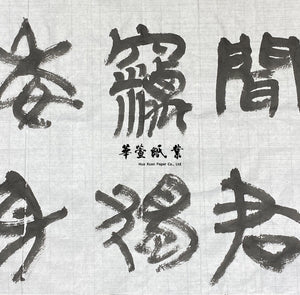 聞君
竊
身
華萱紙業
Hua Xuan Paper Co., Ltd